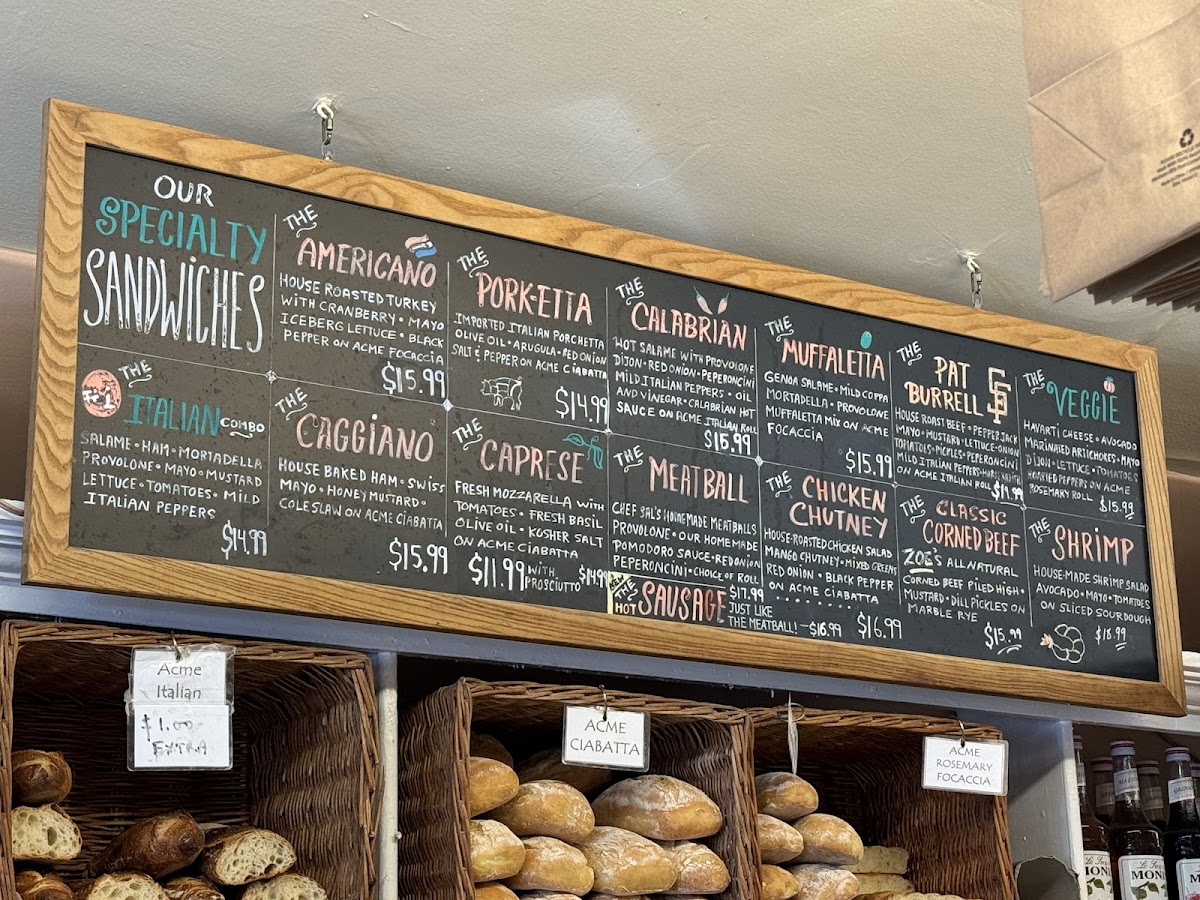 OUR
SPECIALTY
SANDWICHES
THE
AMERICANO
HOUSE ROASTED TURKEY
WITH CRANBERRY • MAYO
ICEBERG LETTUCE • BLACK
PEPPER ON ACME FOCACCIA
$15.99
THE
PORK-ETTA
IMPORTED ITALIAN PORCHETTA
OLIVE OIL • ARUGULA • RED ONION
SALT & PEPPER ON ACME CIABATTA
$14.99
THE
CALABRIAN
HOT SALAME WITH PROVOLONE
DIJON • RED ONION • PEPERONCINI
MILD ITALIAN PEPPERS • OIL
AND VINEGAR • CALABRIAN HOT
SAUCE ON ACME ITALIAN ROLL
$15.99
THE
MUFFALETTA
GENOA SALAME • MILD COPPA
MORTADELLA • PROVOLONE
MUFFALETTA MIX ON ACME
FOCACCIA
$15.99
THE
PAT
BURRELL
SF
HOUSE ROAST BEEF • PEPPER JACK
MAYO • MUSTARD • LETTUCE • ONION
TOMATOES • PICKLES • PEPERONCINI
MILD ITALIAN PEPPERS • HORSERADISH
ON ACME ITALIAN ROLL
THE
VEGGIE
HAVARTI CHEESE • AVOCADO
MARINATED ARTICHOKES • MAYO
DIJON • LETTUCE • TOMATOES
ROASTED PEPPERS ON ACME
ROSEMARY ROLL
$15.99
THE
ITALIAN COMBO
SALAME • HAM • MORTADELLA
PROVOLONE • MAYO • MUSTARD
LETTUCE • TOMATOES • MILD
ITALIAN PEPPERS
$14.99
THE
CAGGIANO
HOUSE BAKED HAM • SWISS
MAYO • HONEY MUSTARD •
COLESLAW ON ACME CIABATTA
$15.99
THE
CAPRESE
FRESH MOZZARELLA WITH
TOMATOES • FRESH BASIL
OLIVE OIL • KOSHER SALT
ON ACME CIABATTA
$11.99 WITH PROSCIUTTO $14.99
THE
MEATBALL
CHEF SAL'S HOMEMADE MEATBALLS
PROVOLONE • OUR HOMEMADE
POMODORO SAUCE • RED ONION
PEPERONCINI • CHOICE OF ROLL
$17.99
THE
HOT SAUSAGE
JUST LIKE
THE MEATBALL! — $16.99
THE
CHICKEN
CHUTNEY
HOUSE-ROASTED CHICKEN SALAD
MANGO CHUTNEY • MIXED GREENS
RED ONION • BLACK PEPPER
ON ACME CIABATTA
$16.99
THE
CLASSIC
CORNED BEEF
ZOE'S ALL NATURAL
CORNED BEEF PILED HIGH •
MUSTARD • DILL PICKLES ON
MARBLE RYE
$15.99
THE
SHRIMP
HOUSE-MADE SHRIMP SALAD
AVOCADO • MAYO • TOMATOES
ON SLICED SOURDOUGH
$18.99
Acme
Italian
$1.00
EXTRA
ACME
CIABATTA
ACME
ROSEMARY
FOCACCIA